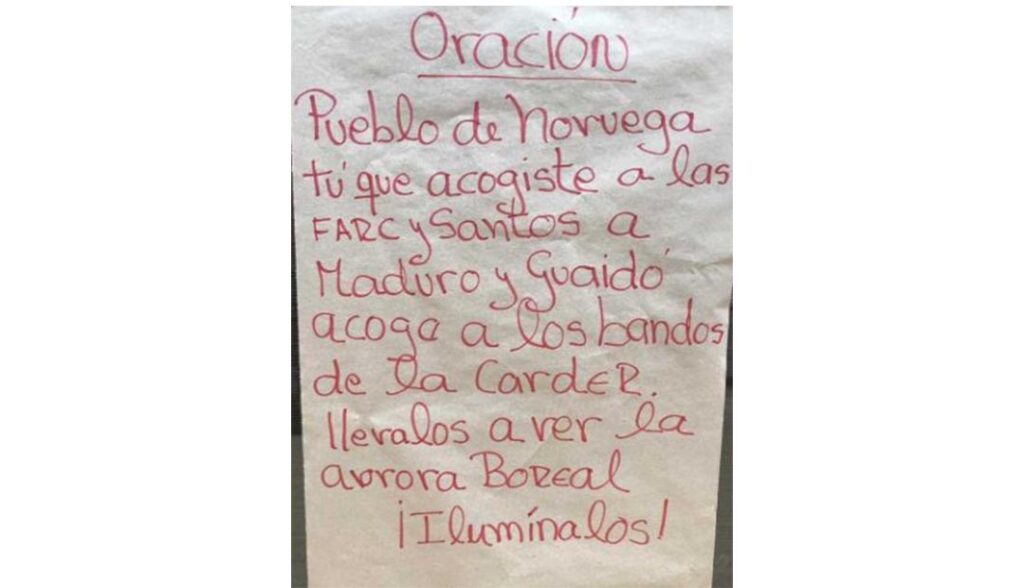 Oración
Pueblo de Noruega
tú que acogiste a las
FARC y Santos a
Maduro y Guaidó
acoge a los bandos
de la CardER.
llevalos a ver la
aurora BOREAL
¡Ilumínalos!